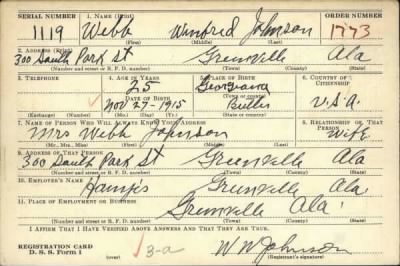 SERIAL NUMBER 1. NAME (Print) ORDER NUMBER
1119 Webb Winfred Johnson 1773
(First) (Middle) (Last)
2. ADDRESS (Print)
300 South Park St Greenville Ala
(Number and street or R. F. D. number) (Town) (County) (State)
3. TELEPHONE 4. AGE IN YEARS 5. PLACE OF BIRTH 6. COUNTRY OF CITIZENSHIP
25 Georgiana
DATE OF BIRTH (Town or county)
Nov 27-1915 Butler U.S.A.
(Exchange) (Number) (Mo.) (Day) (Yr.) (State or country)
7. NAME OF PERSON WHO WILL ALWAYS KNOW YOUR ADDRESS 8. RELATIONSHIP OF THAT PERSON
Mrs Webb Johnson Wife
(Mr., Mrs., Miss) (First) (Middle) (Last)
9. ADDRESS OF THAT PERSON
300 South Park St Greenville Ala
(Number and street or R. F. D. number) (Town) (County) (State)
10. EMPLOYER'S NAME
Greenville Ala
11. PLACE OF EMPLOYMENT OR BUSINESS
Greenville Ala
(Number and street or R. F. D. number) (Town) (County) (State)
I AFFIRM THAT I HAVE VERIFIED ABOVE ANSWERS AND THAT THEY ARE TRUE.
REGISTRATION CARD
D. S. S. Form 1 3-a W W Johnson